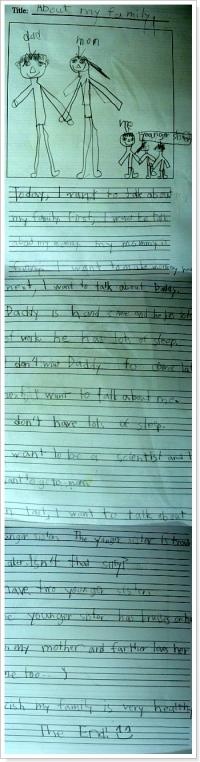 Title: About my family!
dad
mom
me
younger sisters
Today, I want to talk about
my family. First, I want to talk
about my mommy. my mommy is
I want to make mommy
next, I want to talk about Daddy.
Daddy is handsome and he has lots
of work. he has lots of sleep.
don't want Daddy to come lat
next, I want to talk about me.
don't have lots of sleep.
want to be a scientist and I
want to go to
n last, I want to talk about
unger sister. The younger sister is
Isn't that silly?
have two younger sisters.
e younger sister has
n my mother and farther loves her
me too... :)
wish my family is very healthy
The End! :)